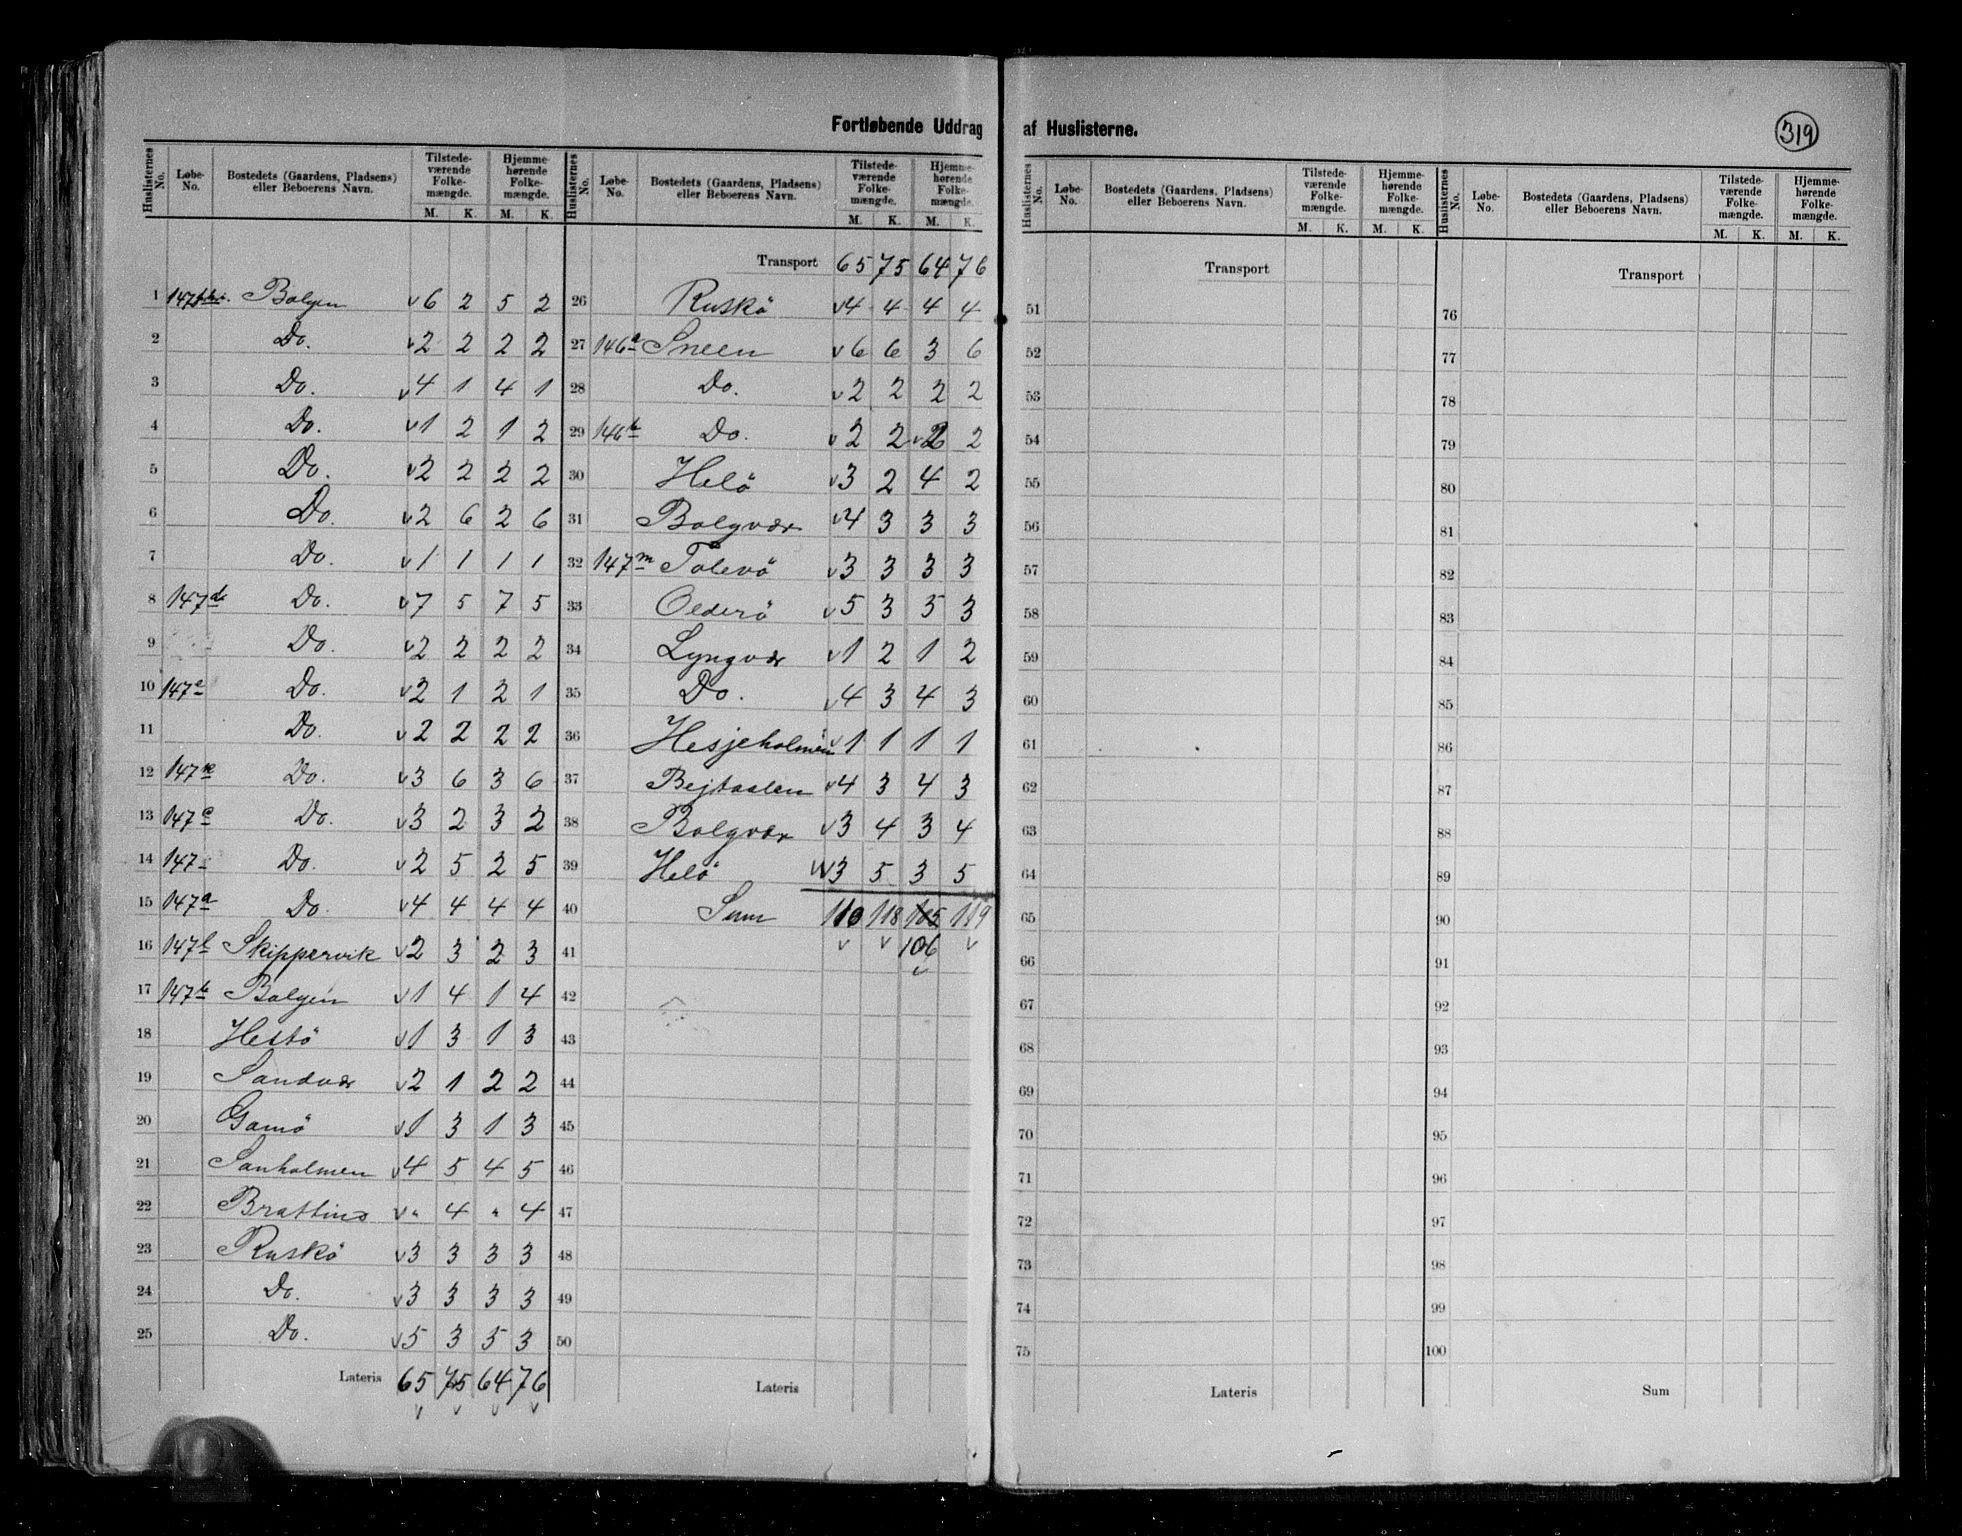 Fortløbende Uddrag af Huslisterne.
319
Huslisternes No. Løbe-No. Bostedets (Gaardens, Pladsens) eller Beboerens Navn. Tilstedeværende Folkemængde. M. K. Hjemmehørende Folkemængde. M. K.
1 Bolgen v 6 2 5 2
2 Do. v 2 2 2 2
3 Do. v 4 1 4 1
4 Do. v 1 2 1 2
5 Do. v 2 2 2 2
6 Do. v 2 6 2 6
7 Do. v 1 1 1 1
8 Do. v 7 5 7 5
9 Do. v 2 2 2 2
10 147e Do. v 2 1 2 1
11 Do. v 2 2 2 2
12 Do. v 3 6 3 6
13 147c Do. v 3 2 3 2
14 147 Do. v 2 5 2 5
15 147a Do. v 4 4 4 4
16 147l Skippervik v 2 3 2 3
17 147b Bolgen v 1 4 1 4
18 Hestö v 1 3 1 3
19 Sandvær v 2 1 2 2
20 Gamö v 1 3 1 3
21 Sanholmen v 4 5 4 5
22 Brattins v " 4 " 4
23 Ruskö v 3 3 3 3
24 Do. v 3 3 3 3
25 Do. v 5 3 5 3
Lateris 65 75 64 76
v v v v
Huslisternes No. Løbe-No. Bostedets (Gaardens, Pladsens) eller Beboerens Navn. Tilstedeværende Folkemængde. M. K. Hjemmehørende Folkemængde. M. K.
Transport 65 75 64 76
26 Ruskö v 4 4 4 4
27 146a Sneen v 6 6 3 6
28 Do. v 2 2 2 2
29 146b Do. v 2 2 v 2 2
30 Helö v 3 2 4 2
31 Bolgvær v 4 3 3 3
32 147m Tolevö v 3 3 3 3
33 Olderö v 5 3 5 3
34 Lyngvær v 1 2 1 2
35 Do. v 4 3 4 3
36 Hesjeholmen v 1 1 1 1
37 Bejtaalen v 4 3 4 3
38 Bolgvær v 3 4 3 4
39 Helö v 3 5 3 5
40 Sum 110 118 105 119
41 v v 106 v
v
42
43
44
45
46
47
48
49
50
Lateris
Huslisternes No. Løbe-No. Bostedets (Gaardens, Pladsens) eller Beboerens Navn. Tilstedeværende Folkemængde. M. K. Hjemmehørende Folkemængde. M. K.
Transport
51
52
53
54
55
56
57
58
59
60
61
62
63
64
65
66
67
68
69
70
71
72
73
74
75
Lateris
Huslisternes No. Løbe-No. Bostedets (Gaardens, Pladsens) eller Beboerens Navn. Tilstedeværende Folkemængde. M. K. Hjemmehørende Folkemængde. M. K.
Transport
76
77
78
79
80
81
82
83
84
85
86
87
88
89
90
91
92
93
94
95
96
97
98
99
100
Sum